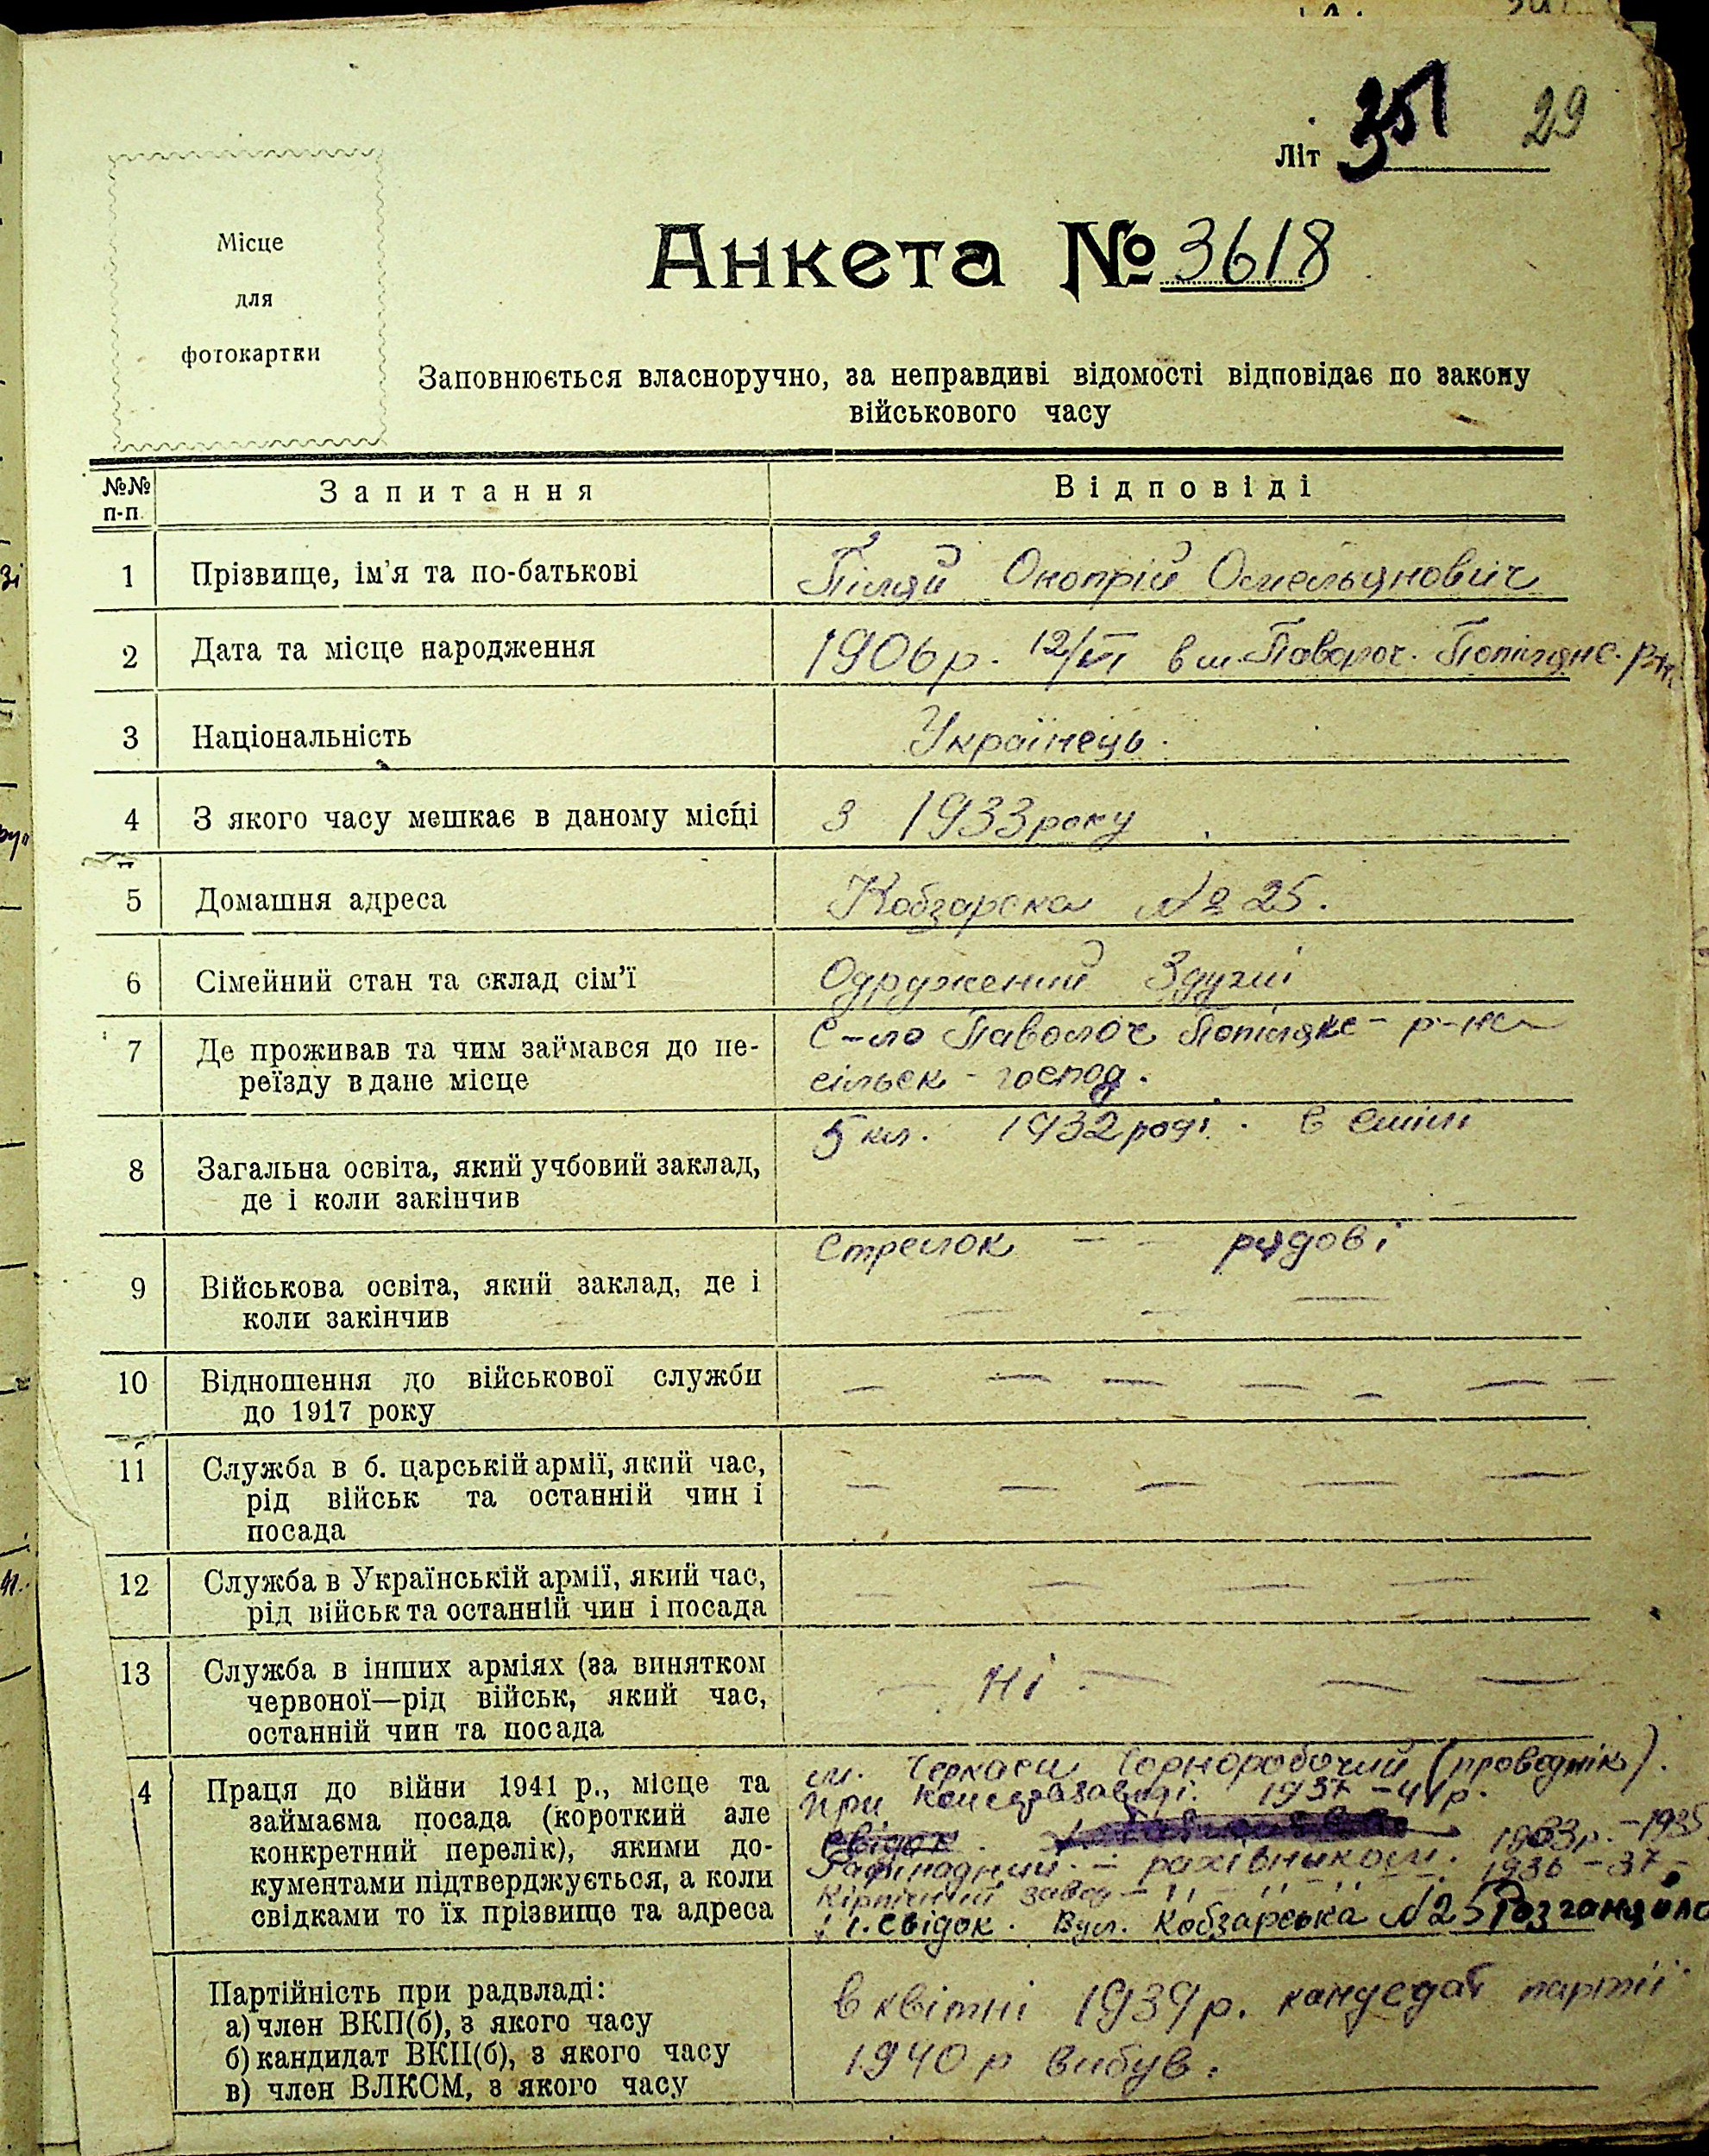 Літ 351 29
Місце
для
фотокартки
Анкета № 3618
Заповнюється власноручно, за неправдиві відомості відповідає по закону
військового часу
№№ п-п. Запитання Відповіді
1 Прізвище, ім'я та по-батькові Піляй Омельянович
2 Дата та місце народження 1906 р. 12/VI в м. Паволоч. Попілянс. р-н
3 Національність Українець.
4 З якого часу мешкає в даному місці З 1933 року
5 Домашня адреса Кобзарска № 25.
6 Сімейний стан та склад сім'ї Одружений
7 Де проживав та чим займався до пе- С-ло Паволоч Попілянс- р-на
реїзду в дане місце сільск-господ.
8 Загальна освіта, який учбовий заклад, 5 кл. 1932 році. в Смілі
де і коли закінчив
9 Військова освіта, який заклад, де і Стрелок — — рядові
коли закінчив — — —
10 Відношення до військової служби — — — — — — —
до 1917 року
11 Служба в б. царській армії, який час, — — — — —
рід військ та останній чин і
посада
12 Служба в Українській армії, який час, — — — —
рід військ та останній чин і посада
13 Служба в інших арміях (за винятком — Ні — — —
червоної—рід військ, який час,
останній чин та посада
4 Праця до війни 1941 р., місце та м. Черкаси Чорноробочий (проводнік).
займаєма посада (короткий але при 1937-41 р.
конкретний перелік), якими до- свідок. 1933 р.-1935
кументами підтверджується, а коли Рафінадний. — рахівником. 1936-37
свідками то їх прізвище та адреса Кірпічний завод — " — " — " —
1. Свідок. Вул. Кобзарська № 25
Партійність при радвладі: в квітні 1939 р. кандедат партії
а) член ВКП(б), з якого часу
б) кандидат ВКП(б), з якого часу 1940 р вибув.
в) член ВЛКСМ, з якого часу